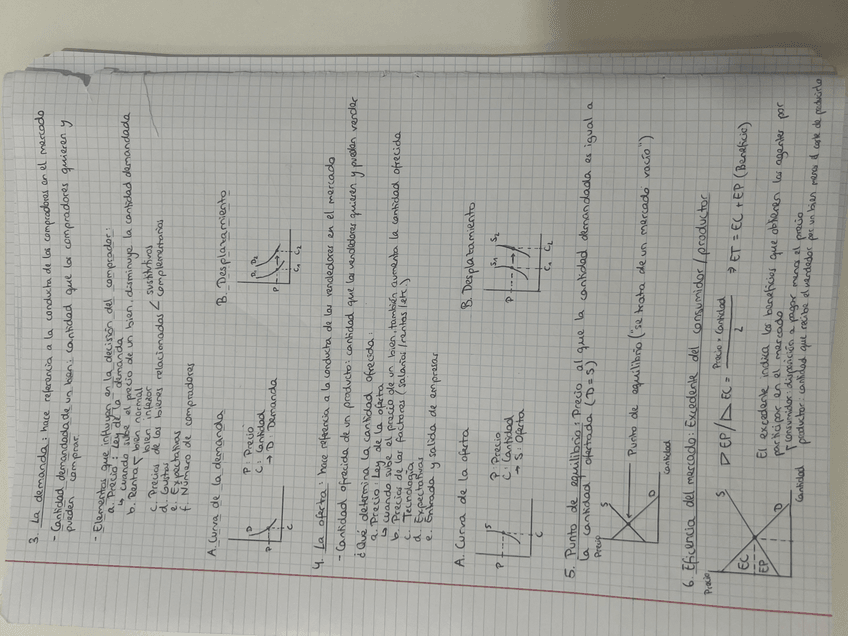 3. La demanda: hace referencia a la conducta de los compradores en el mercado
- Cantidad demandada de un bien: cantidad que los compradores quieren y
pueden comprar.
- Elementos que influyen en la decisión del comprador:
a. Precio: Ley de la demanda
↳ cuando sube el precio de un bien, disminuye la cantidad demandada
b. Renta < bien normal
bien inferior
c. Precios de los bienes relacionadas < sustitutivos
complementarios
d. Gustos
e. Expectativas
f. Número de compradores
A. Curva de la demanda
P
D
C
P: Precio
C: Cantidad
→ D Demanda
B. Desplazamiento
P
D1 D2
C1 C2
4. La oferta: hace referencia a la conducta de los vendedores en el mercado
- Cantidad ofrecida de un producto: cantidad que los vendedores quieren y pueden vender
¿Qué determina la cantidad ofrecida:
a. Precio Ley de la oferta
↳ cuando sube el precio de un bien, también aumenta la cantidad ofrecida
b. Precios de los factores (salarios/rentas/etc.)
c. Tecnología
d. Expectativas
e. Entrada y salida de empresas
A. Curva de la oferta
P
S
C
P: Precio
C: Cantidad
→ S: Oferta
B. Desplazamiento
P
S1 S2
C1 C2
5. Punto de equilibrio: Precio al que la cantidad demandada es igual a
la cantidad ofertada (D=S)
Precio
S
D
Cantidad
Punto de equilibrio ("se trata de un mercado vacío")
6. Eficiencia del mercado: Excedente del consumidor/productor
Precio
S
EC
EP
D
Cantidad
EP / EC = Precio × Cantidad
2
⇒ ET = EC + EP (Beneficio)
El excedente indica los beneficios que obtienen los agentes por
participar en el mercado
consumidor: disposición a pagar menos el precio
productor: cantidad que recibe el vendedor por un bien menos el coste de producirlo